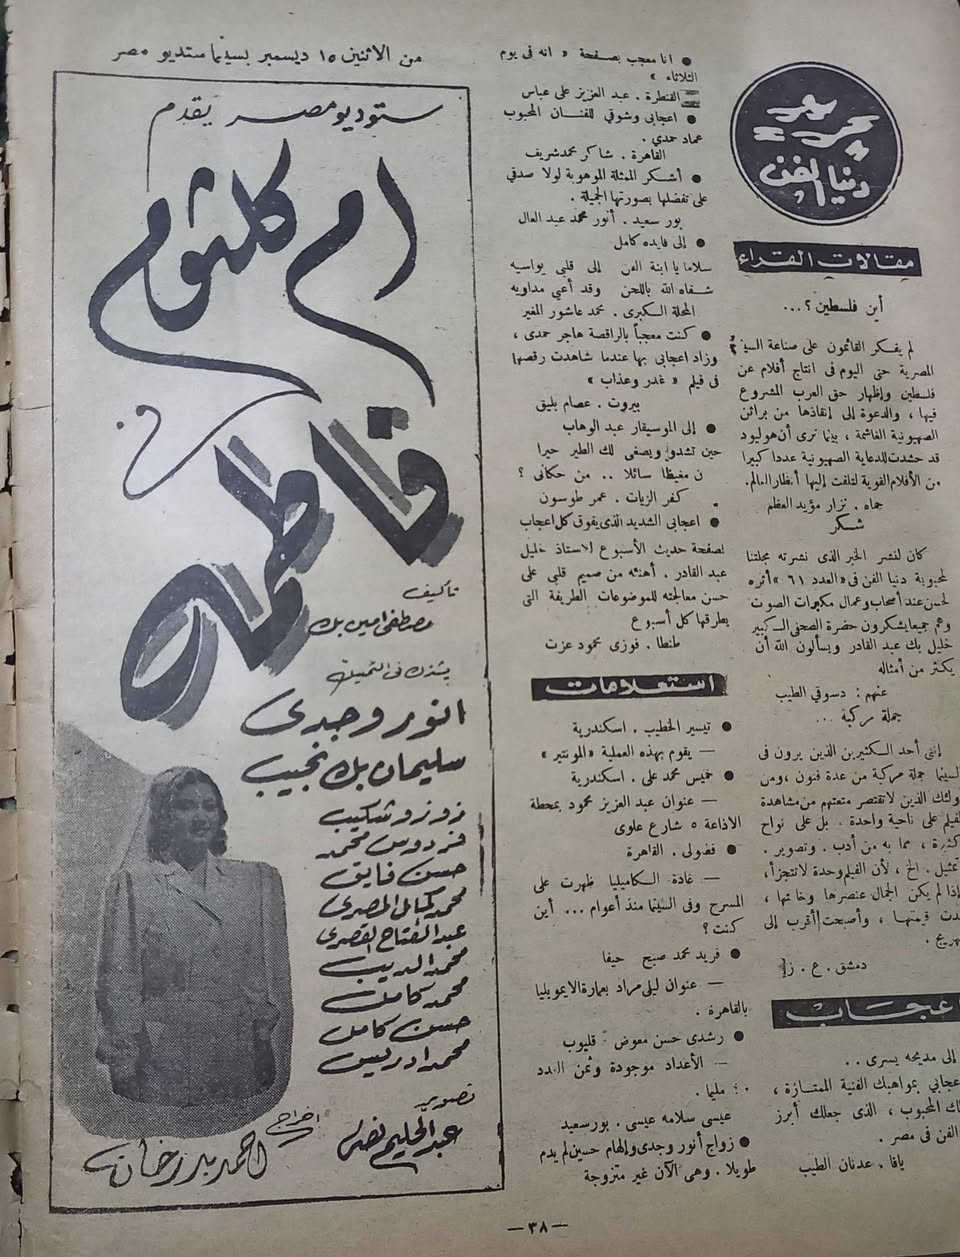 بريد
دنيا الفن
مقالات القراء
أين فلسطين؟ ...
لم يفكر القائمون على صناعة السينما
المصرية حتى اليوم فى انتاج أفلام عن
فلسطين وإظهار حق العرب المشروع
فيها ، والدعوة إلى إنقاذها من براثن
الصهيونية الغاشمة ، بينما نرى أن هوليود
قد حشدت للدعاية الصهيونية عددا كبيرا
من الأفلام القوية لتلفت إليها أنظار العالم.
حماه . نزار مؤيد العظم
شكر
كان لنشر الخبر الذى نشرته مجلتنا
المحبوبة دنيا الفن فى «العدد ٦١» أثره
الحسن عند أصحاب وعمال مكبرات الصوت
وهم جميعا يشكرون حضرة الصحفى الكبير
خليل بك عبد القادر ويسألون الله أن
يكثر من أمثاله
عنهم : دسوقي الطيب
جملة مركبة ...
إننى أحد الكثيرين الذين يرون فى
السينما جملة مركبة من عدة فنون ، ومن
أولئك الذين لا تقتصر متعتهم من مشاهدة
الفيلم على ناحية واحدة . بل على نواح
كثيرة ، مما به من أدب . وتصوير .
تمثيل . الخ ، لأن الفيلم وحدة لا تتجزأ ،
فإذا لم يكن الجمال عنصرها وخاتمها ،
فقدت قيمتها ، وأصبحت أقرب إلى
التهريج .
دمشق . ع . ز
اعجاب
إلى مديحه يسرى ..
اعجابي بمواهبك الفنية الممتازة ،
المحبوب ، الذى جعلك أبرز
الفن فى مصر .
يافا . عدنان الطيب
● انا معجب بصفحة « انه فى يوم
الثلاثاء »
القنطرة . عبد العزيز على عباس
● اعجابى وشوقي للفنان المحبوب
عماد حمدي .
القاهرة . شاكر محمد شريف
● أشكر الممثلة الموهوبة لولا صدقي
على تفضلها بصورتها الجميلة .
بور سعيد . أنور محمد عبد العال
● إلى فايده كامل
سلاما يا ابنة الفن إلى قلبي يواسيه
شفاه الله باللحن وقد أعيى مداويه
المحلة الكبرى . محمد عاشور المغير
● كنت معجباً بالراقصة هاجر حمدى ،
وزاد اعجابى بها عندما شاهدت رقصتها
فى فيلم « غدر وعذاب »
بيروت . عصام بليق
● إلى الموسيقار عبد الوهاب
حين تشدو ويصغى لك الطير حيرا
ن مغيظا سائلا .. من حكانى ؟
كفر الزيات . عمر طوسون
● اعجابى الشديد الذى يفوق كل اعجاب
لصفحة حديث الأسبوع للاستاذ خليل
عبد القادر . أهنئه من صميم قلبى على
حسن معالجته للموضوعات الطريفة التى
يطرقها كل أسبوع
طنطا . فوزى محمود عزت
استعلامات
● تيسير الخطيب . اسكندرية
— يقوم بهذه العملية « المونتير »
● خميس محمد على . اسكندرية
— عنوان عبد العزيز محمود بمحطة
الاذاعة ٥ شارع علوى
● فضولى . القاهرة
— غادة الكاميليا ظهرت على
المسرح وفى السينما منذ أعوام ... أين
كنت ؟
● فريد محمد صبح حيفا
— عنوان ليلى مراد بعمارة الايموبيليا
بالقاهرة .
● رشدى حسن معوض . قليوب
— الأعداد موجودة وثمن العدد
٤٠ مليما .
عيسى سلامه عيسى . بور سعيد
● زواج أنور وجدى وإلهام حسين لم يدم
طويلا . وهى الآن غير متزوجة
من الاثنين ١٥ ديسمبر بسينما ستديو مصر
ستوديو مصر يقدم
ام كلثوم
فاطمة
تأليف
مصطفى امين بك
يشترك فى التمثيل
انور وجدى
سليمان بك نجيب
زوزو شكيب
فردوس محمد
حسن فايق
محمد كمال المصرى
عبد الفتاح القصرى
محمد الديب
محمد كامل
حسن كامل
محمد ادريس
تصوير
عبد الحليم نصر
اخراج
احمد بدرخان
— ٣٨ —